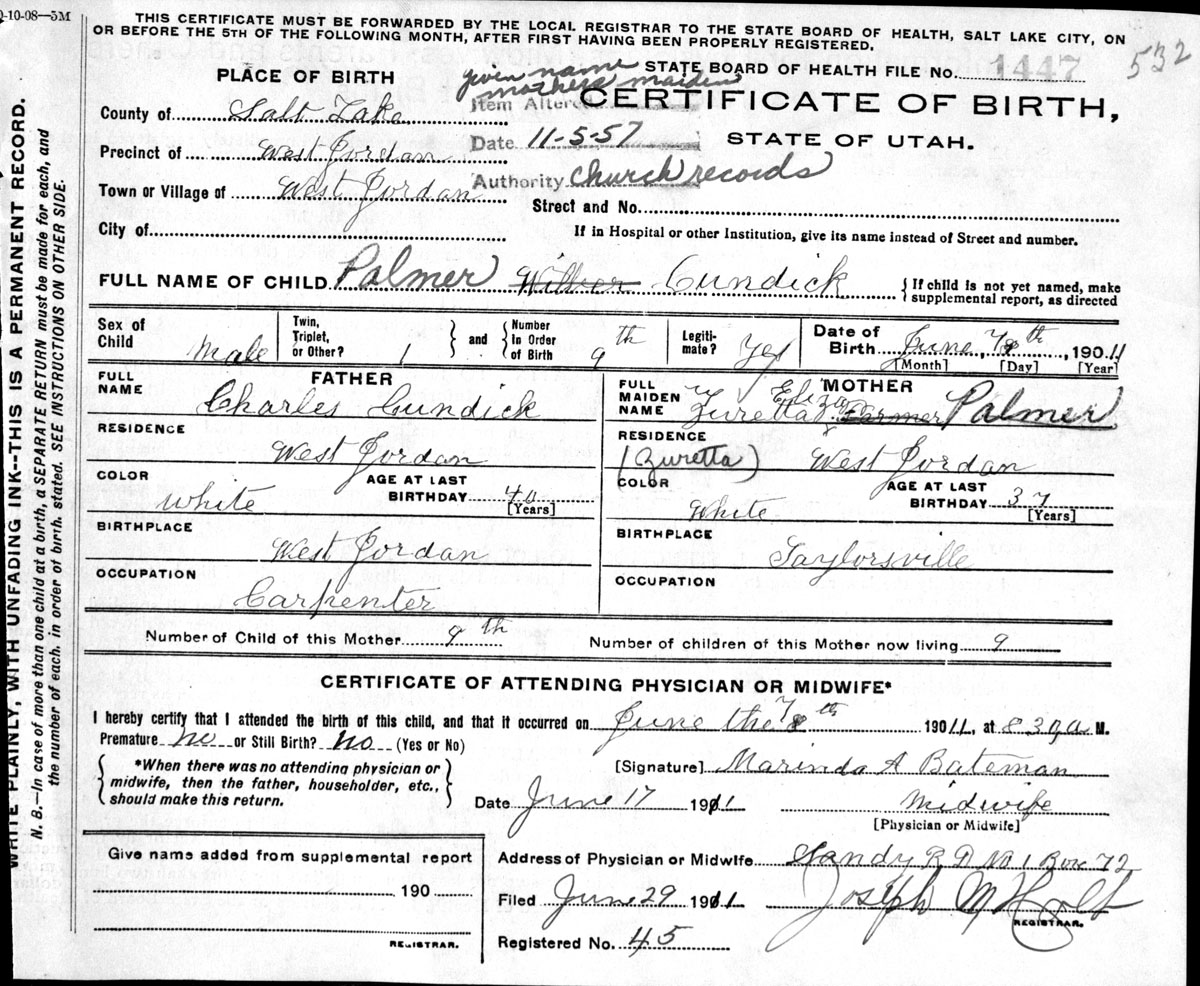 -10-08—5M
THIS CERTIFICATE MUST BE FORWARDED BY THE LOCAL REGISTRAR TO THE STATE BOARD OF HEALTH, SALT LAKE CITY, ON
OR BEFORE THE 5TH OF THE FOLLOWING MONTH, AFTER FIRST HAVING BEEN PROPERLY REGISTERED.
532
PLACE OF BIRTH
given name
mothers maiden
STATE BOARD OF HEALTH FILE NO. 1447
Item Altered
CERTIFICATE OF BIRTH,
County of Salt Lake
Date 11-5-57
STATE OF UTAH.
Precinct of West Jordan
Authority Church records
Town or Village of West Jordan
Street and No.
City of
If in Hospital or other Institution, give its name instead of Street and number.
FULL NAME OF CHILD Palmer Wilber Cundick
{ If child is not yet named, make
supplemental report, as directed
Sex of Child Male
Twin, Triplet, or Other? 1
} and { Number In Order of Birth 9th
Legitimate? Yes
Date of Birth June, 7 8th, 1911
[Month] [Day] [Year]
FULL NAME FATHER
Charles Cundick
RESIDENCE
West Jordan
COLOR
white
AGE AT LAST BIRTHDAY 40
[Years]
BIRTHPLACE
West Jordan
OCCUPATION
Carpenter
FULL MAIDEN NAME MOTHER
Zuretta Eliza Farmer Palmer
RESIDENCE
(Zuretta) West Jordan
COLOR
White
AGE AT LAST BIRTHDAY 37
[Years]
BIRTHPLACE
Taylorsville
OCCUPATION
Number of Child of this Mother 9th
Number of children of this Mother now living 9
CERTIFICATE OF ATTENDING PHYSICIAN OR MIDWIFE*
I hereby certify that I attended the birth of this child, and that it occurred on June the 7 8th 1911, at 8 30 a M.
Premature no or Still Birth? no (Yes or No)
{ *When there was no attending physician or
midwife, then the father, householder, etc.,
should make this return. }
[Signature] Marinda A Bateman
Date June 17 1911
midwife
[Physician or Midwife]
Give name added from supplemental report
190
REGISTRAR.
Address of Physician or Midwife Sandy R D No 1 Box 72
Filed June 29 1911
Joseph M Holt
REGISTRAR.
Registered No. 45
WRITE PLAINLY, WITH UNFADING INK--THIS IS A PERMANENT RECORD.
N. B.—In case of more than one child at a birth, a SEPARATE RETURN must be made for each, and
the number of each, in order of birth, stated. SEE INSTRUCTIONS ON OTHER SIDE.